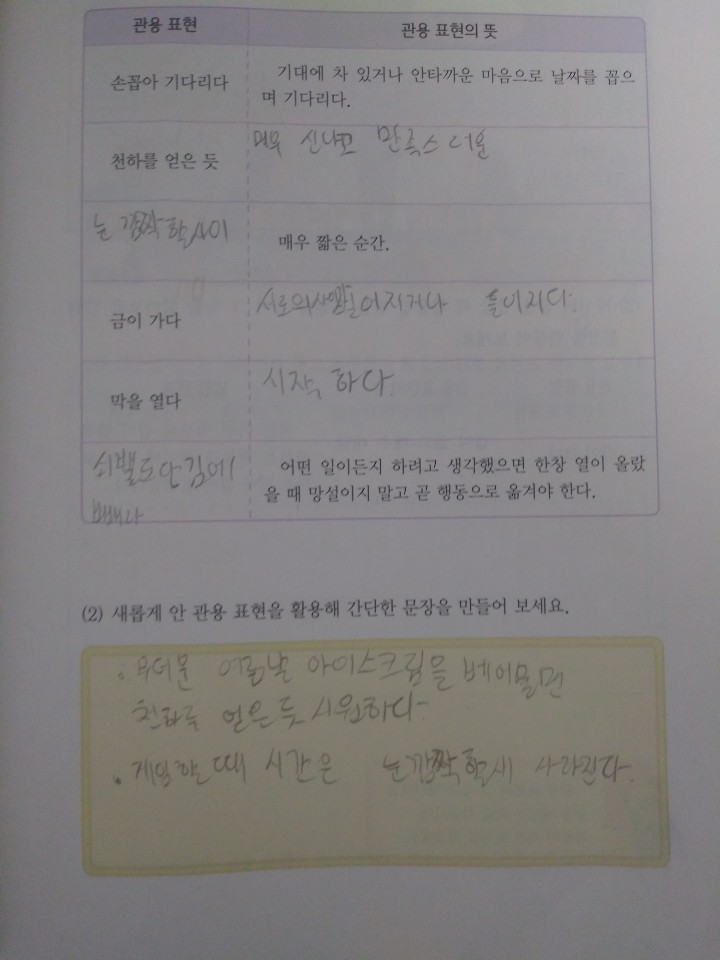 관용 표현 관용 표현의 뜻
손꼽아 기다리다
기대에 차 있거나 안타까운 마음으로 날짜를 꼽으
며 기다리다.
천하를 얻은 듯
매우 신나고 만족스러운
눈 깜짝할 사이
매우 짧은 순간.
금이 가다
서로의 사이가 틀어지다.
막을 열다
시작 하다.
쇠뿔도 단 김에
빼라
어떤 일이든지 하려고 생각했으면 한창 열이 올랐
을 때 망설이지 말고 곧 행동으로 옮겨야 한다.
(2) 새롭게 안 관용 표현을 활용해 간단한 문장을 만들어 보세요.
• 무더운 여름날 아이스크림을 베이물면
천하를 얻은 듯 시원하다
• 게임할 때 시간은 눈깜짝할새 사라진다.